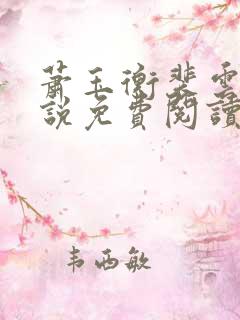 蕭玉衡裴雲
說免費閱讀
韦西敏